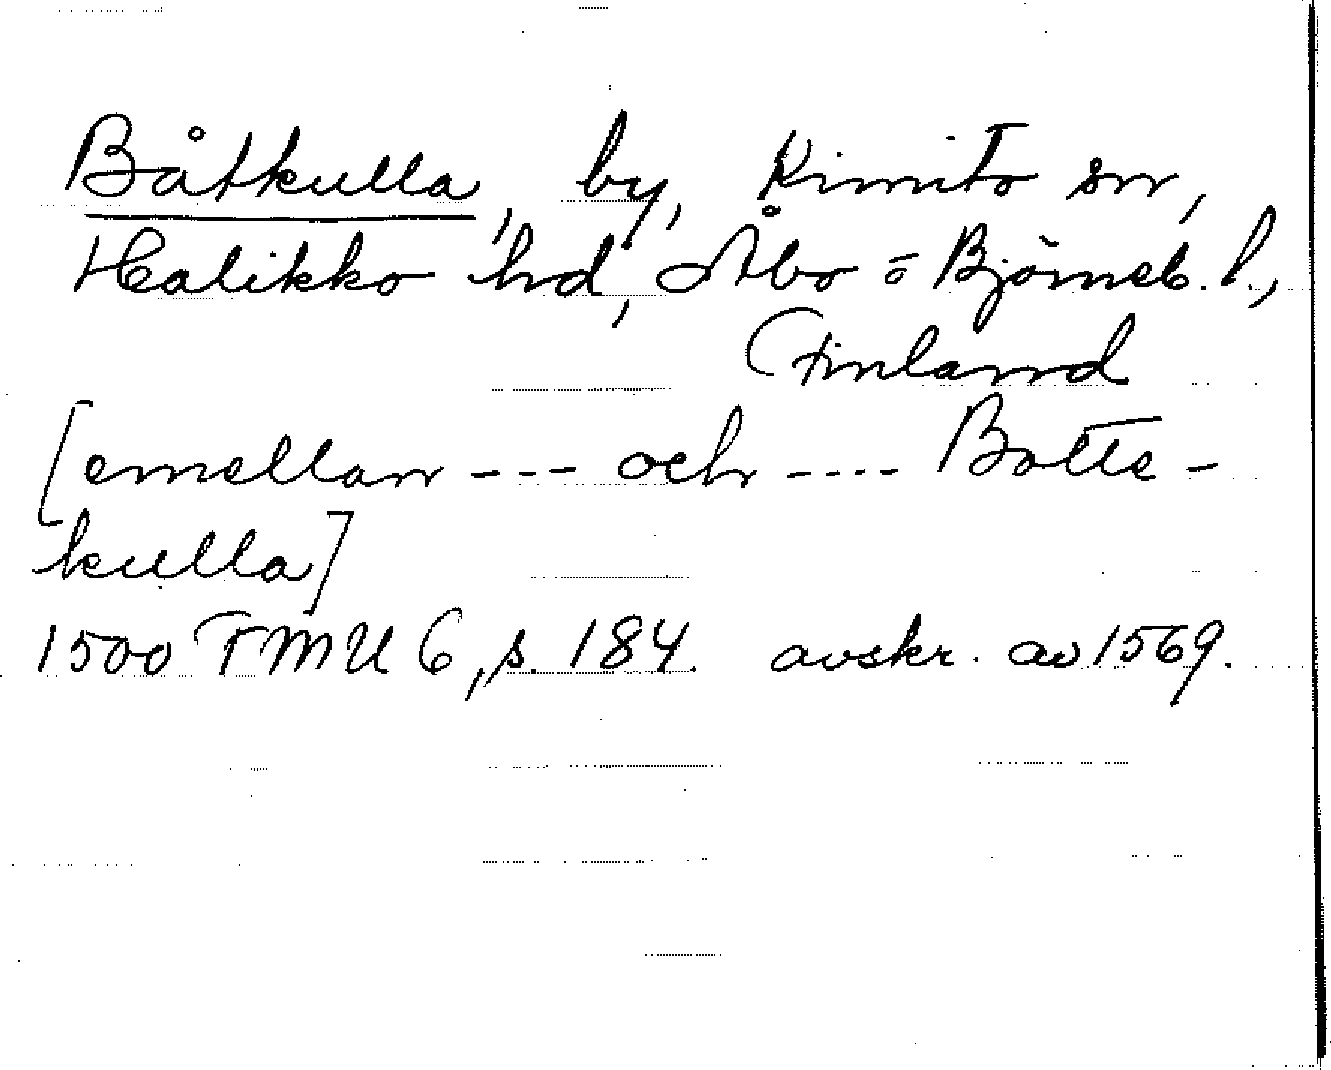 Båtkulla, by, Kimito sn,
Halikko hd, Åbo o Björneb. l.,
Finland
[emellan --- och ---- Botte-
kulla]
1500 FMU 6, s. 184. avskr. av 1569.